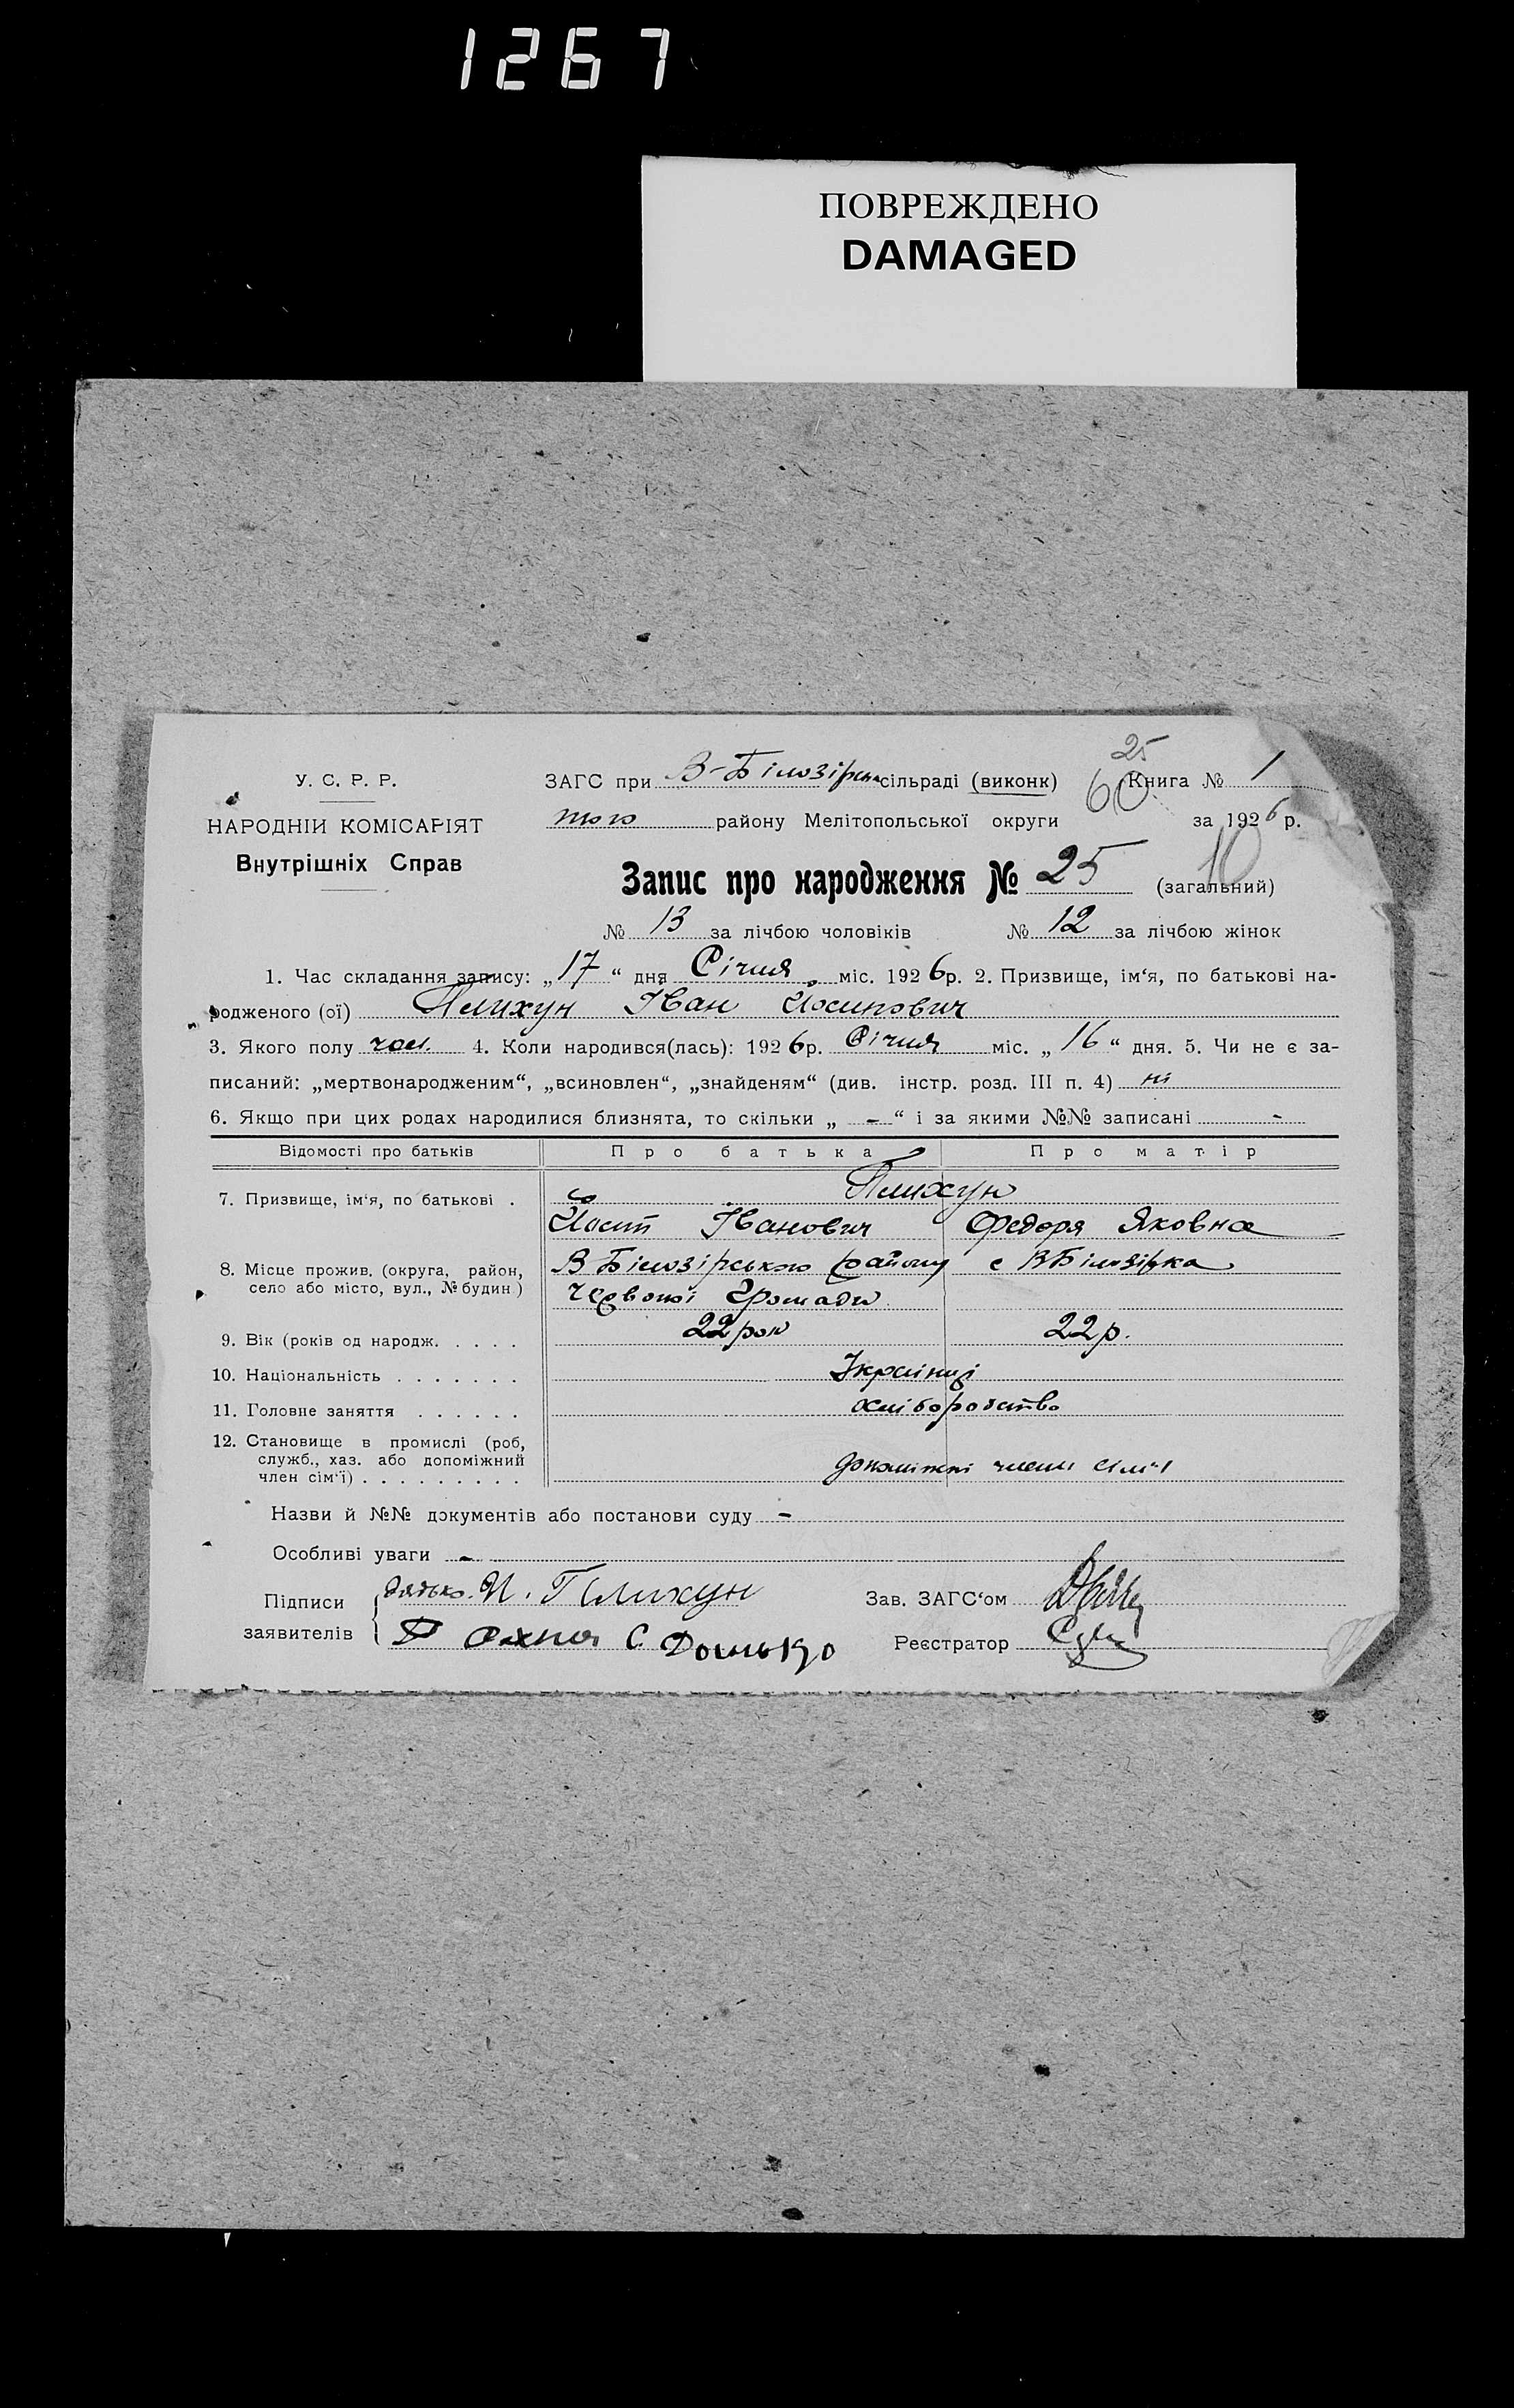 1267
ПОВРЕЖДЕНО
DAMAGED
25
У. С. Р. Р.
ЗАГС при В-Білозірськ сільраді (виконк)
60
Книга № 1
НАРОДНІЙ КОМІСАРІЯТ
того району Мелітопольської округи
за 1926 р.
Внутрішніх Справ
10
Запис про народження № 25 (загальний)
№ 13 за лічбою чоловіків № 12 за лічбою жінок
1. Час складання запису: „17“ дня Січня міс. 1926р. 2. Призвище, ім‘я, по батькові на-
родженого (ої) Плихун Іван Йосипович
3. Якого полу чол. 4. Коли народився(лась): 1926р. Січня міс. „16“ дня. 5. Чи не є за-
писаний: „мертвонародженим“, „всиновлен“, „знайденям“ (див. інстр. розд. III п. 4) ні
6. Якщо при цих родах народилися близнята, то скільки „ - “ і за якими №№ записані -
Відомості про батьків
Про батька
Про матір
7. Призвище, ім‘я, по батькові .
Плихун
Йосип Іванович
Федоря Яковна
8. Місце прожив. (округа, район,
село або місто, вул., № будин.)
В Білозірського району
с ВБілозірка
Червоної Громади
9. Вік (років од народж. . . . .
22 рок
22 р.
10. Національність . . . . . . .
Українці
11. Головне заняття . . . . . .
хліборобство
12. Становище в промислі (роб,
служб., хаз. або допоміжний
член сім‘ї) . . . . . . . . .
допоміжні члени сім‘ї
Назви й №№ документів або постанови суду -
Особливі уваги -
Підписи
заявителів
батько. И. Плихун
Зав. ЗАГС‘ом
Реєстратор